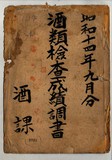 昭和十四年九月分
酒類検査成績調書
酒課